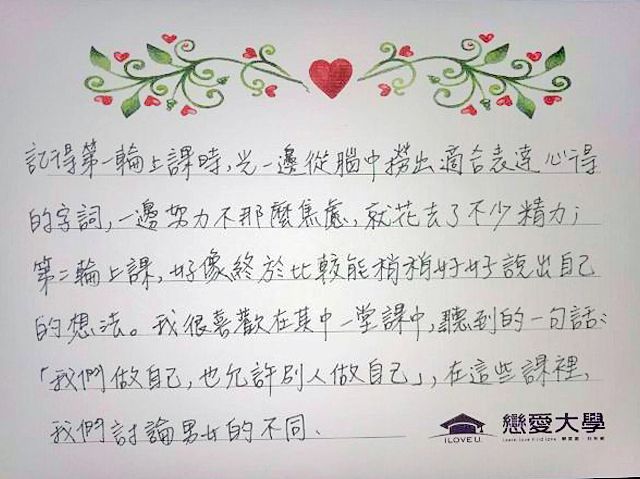 記得第一輪上課時，光一邊從腦中撈出適合表達心得
的字詞，一邊努力不那麼焦慮，就花去了不少精力；
第二輪上課，好像終於比較能稍稍好好說出自己
的想法。我很喜歡在其中一堂課中，聽到的一句話：
「我們做自己，也允許別人做自己」，在這些課裡，
我們討論男女的不同、
I LOVE U.
戀愛大學
Learn Love Find Love